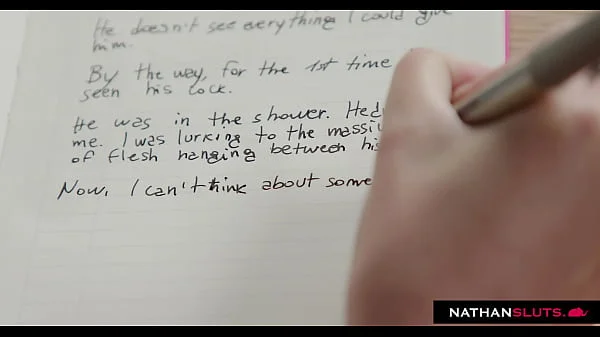 He doesn't see everything I could give
him.
By the way, for the 1st time
seen his cock.
He was in the shower. He
me. I was lurking to the
of flesh hanging between
Now, I can't think about
NATHANSLUTS.